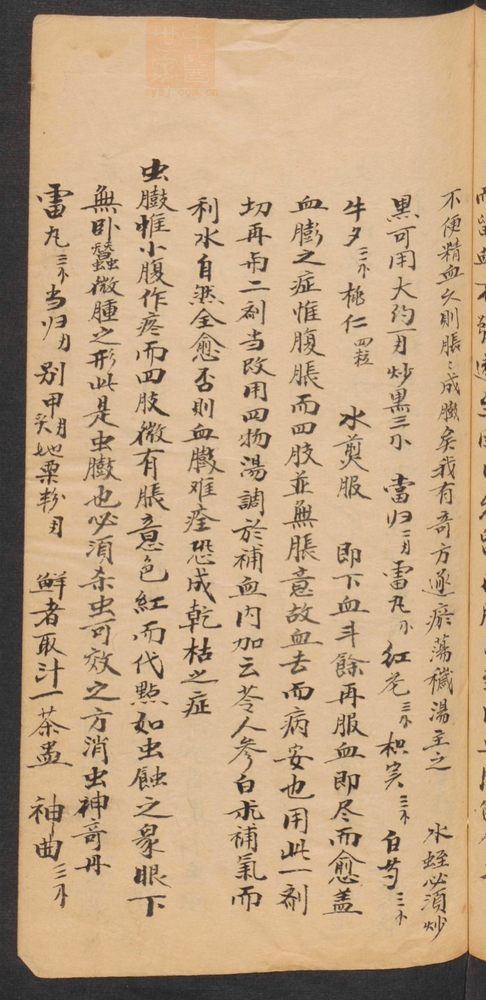 不便精血久則脹〻成臌矣我有奇方逐瘀蕩穢湯主之　水蛭必須炒
黑可用大約一月炒黑三小　當归二月雷丸小红花三小枳实三小白芍三小
牛夕二小桃仁四粒　水煎服　即下血斗餘再服血即尽而愈蓋
血膨之症惟腹脹而四肢並無脹意故血去而病安也用此一劑
切再用二剂当改用四物湯調於補血内加云苓人參白朮補氣而
利水自然全愈否則血臌难痊恐成乾枯之症
虫臌惟小腹作疼而四肢微有脹意色紅而代點如虫蝕之象眼下
無卧蠶微腫之形此是虫臌也必須杀虫可效之方消虫神奇丹
雷丸三小当归月别甲月地栗粉月　鮮者取汁一茶盅　神曲三小